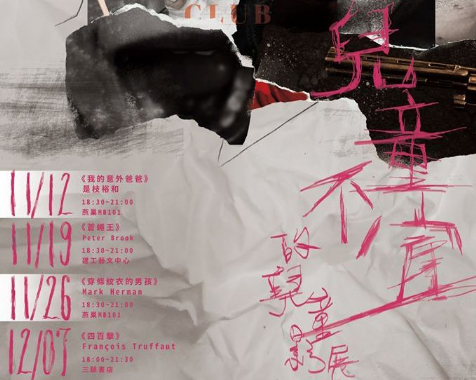 CLUB
兒童不宜
的兒童影展
11/12
《我的意外爸爸》
是枝裕和
18:30-21:00
燕巢MB101
11/19
《蒼蠅王》
Peter Brook
18:30-21:00
建工藝文中心
11/26
《穿條紋衣的男孩》
Mark Herman
18:30-21:00
燕巢MB101
12/07
《四百擊》
François Truffaut
18:00-21:00
三餘書店